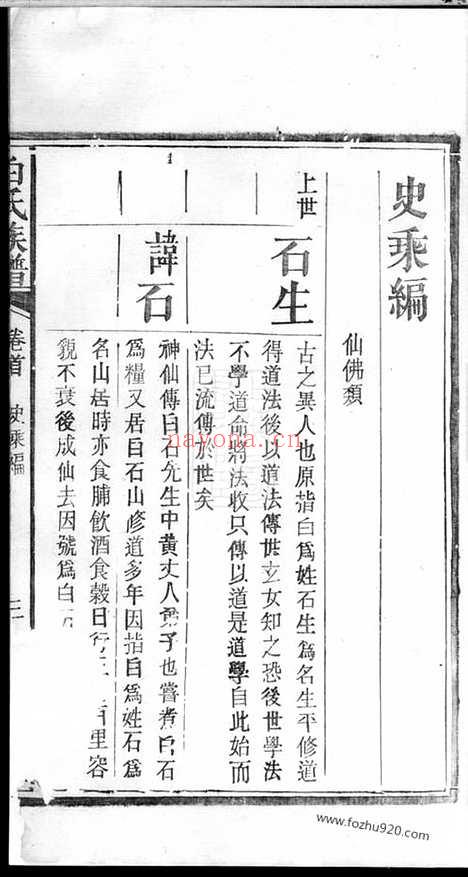 史乘編
仙佛類
上世
石生
古之異人也原指白爲姓石生爲名生平修道
得道法後以道法傳世玄女知之恐後世學法
不學道命將法收只傳以道是道學自此始而
法已流傳於世矣
諱石
神仙傳白石先生中黃丈人弟子也嘗煮白石
爲糧又居白石山修道多年因指白爲姓石爲
名山居時亦食脯飲酒食穀日行三 百里容
貌不衰後成仙去因號爲白石
白氏族譜
卷首 史乘編
三
nayona.cn
www.fozhu920.com